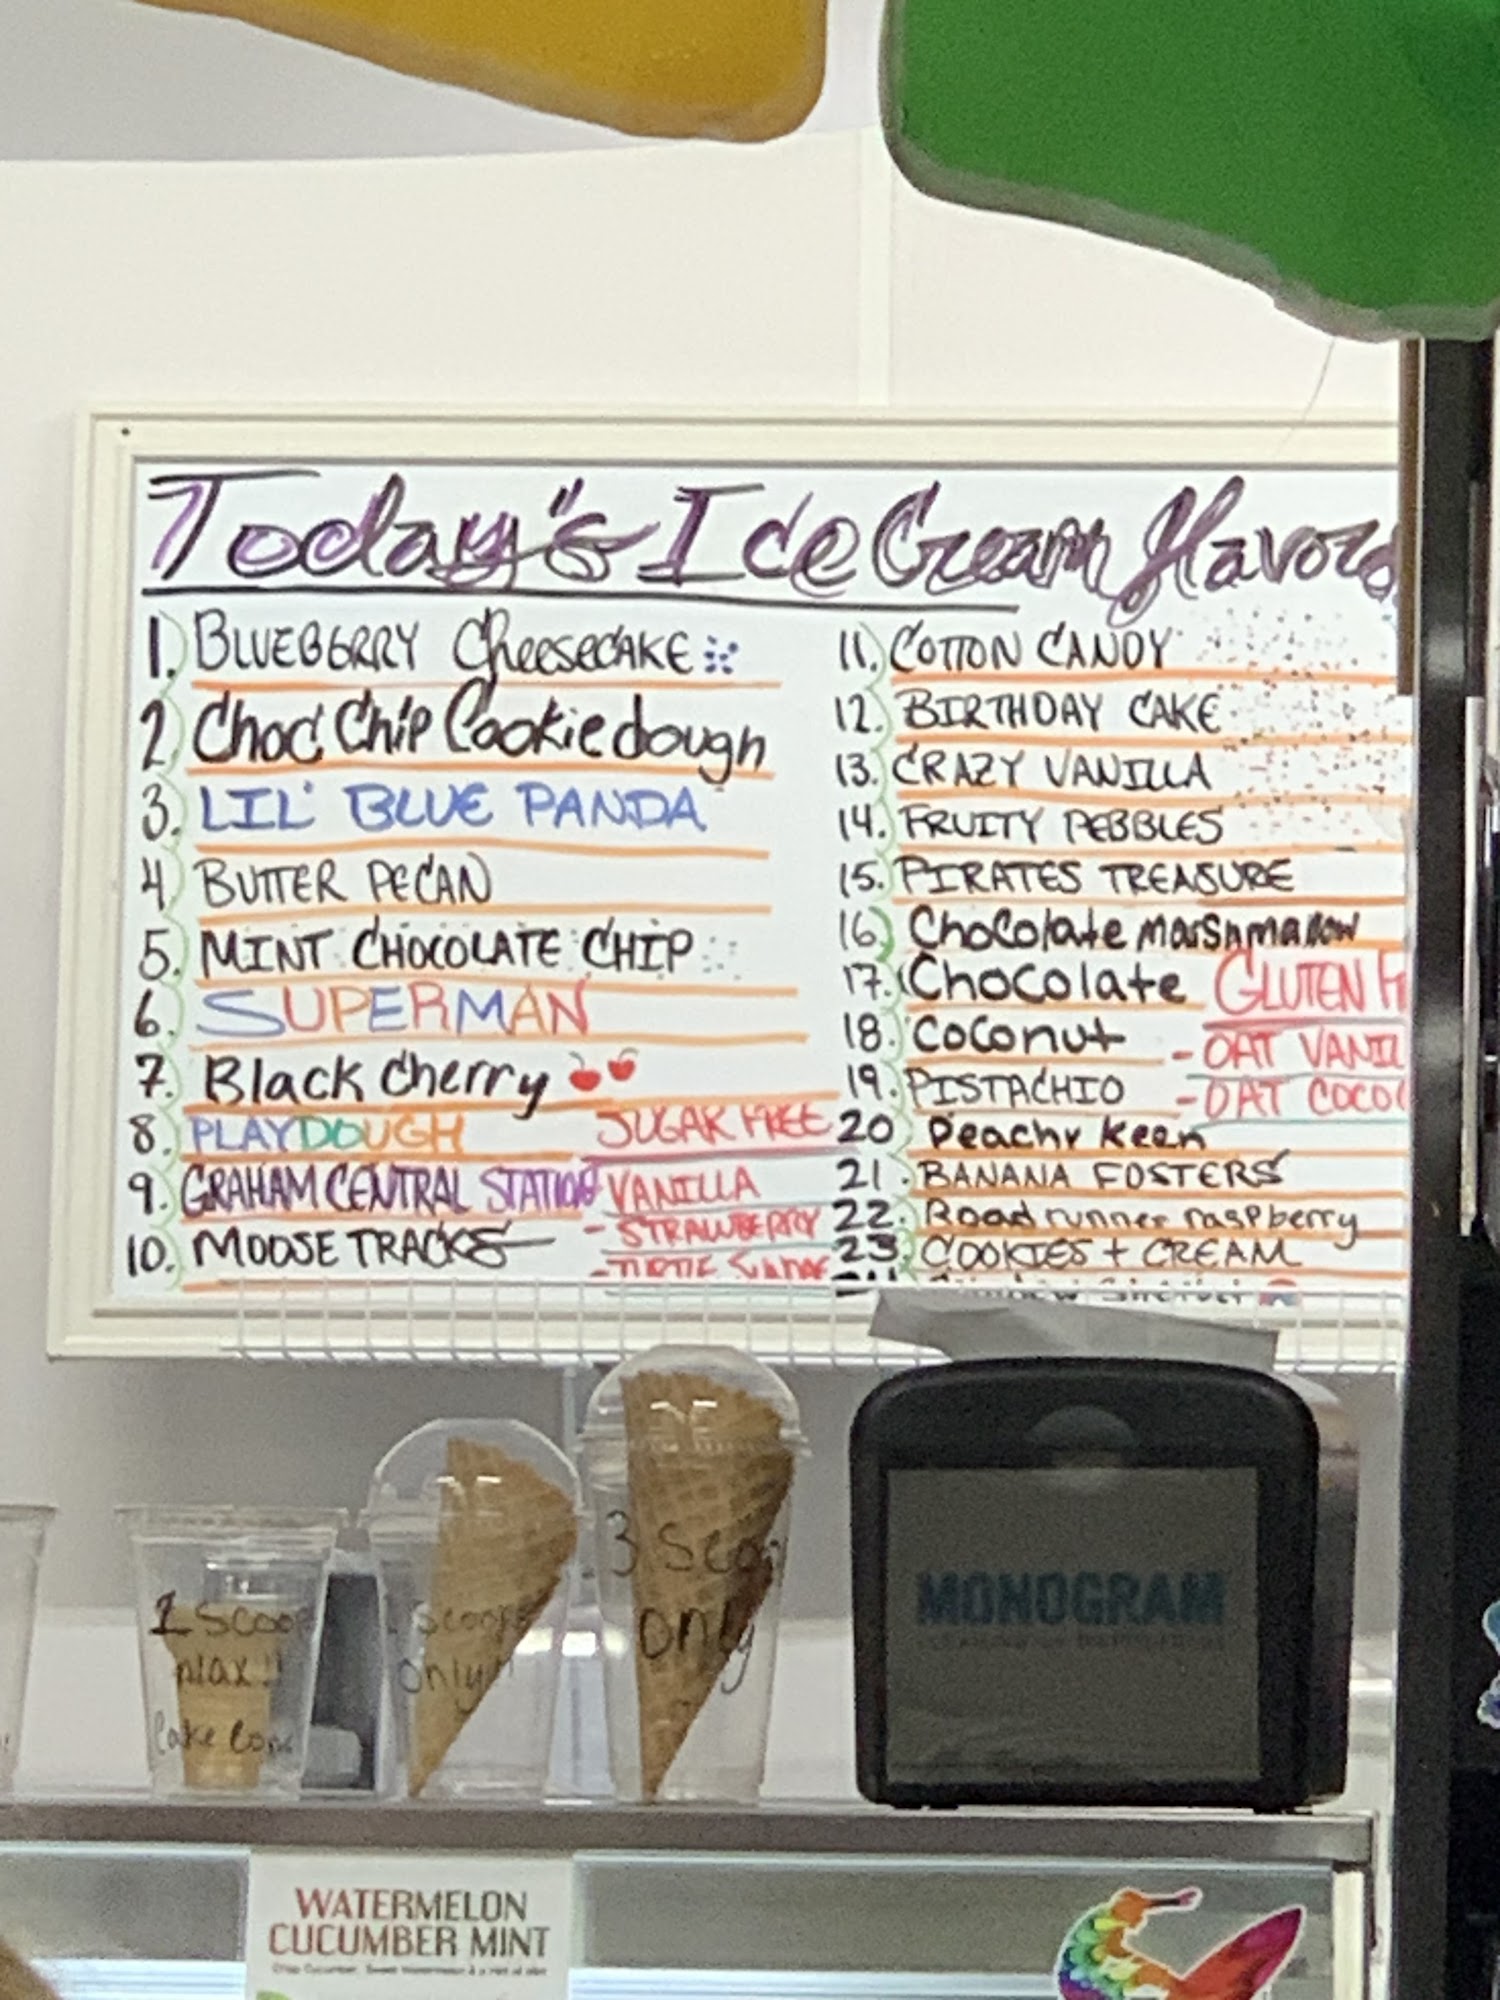 Today's Ice Cream flavors
1. BLUEBERRY CheeseCAKE
2. Choc Chip Cookie dough
3. LIL' BLUE PANDA
4. BUTTER PECAN
5. MINT CHOCOLATE CHIP
6. SUPERMAN
7. Black Cherry
8. PLAYDOUGH
9. GRAHAM CENTRAL STATION
10. MOOSE TRACKS
SUGAR FREE
- VANILLA
- STRAWBERRY
- TURTLE
11. COTTON CANDY
12. BIRTHDAY CAKE
13. CRAZY VANILLA
14. FRUITY PEBBLES
15. PIRATES TREASURE
16. Chocolate marshmallow
17. Chocolate
18. Coconut
19. PISTACHIO
20. Peachy Keen
21. BANANA FOSTERS
22. Road runner raspberry
23. COOKIES + CREAM
GLUTEN
- OAT
- OAT
1 Scoop
max!!
Cake Cone
Scoops
only!!
3 Scoop
only
MONOGRAM
WATERMELON
CUCUMBER MINT